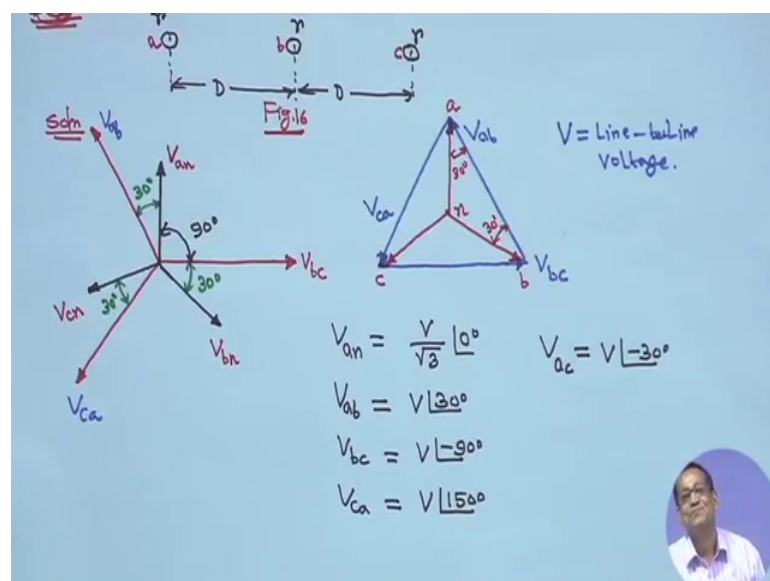 r r r
a b c
D D
Fig.16
Soln
Vab
Van
30°
90°
Vbc
30°
30°
Vcn
Vbn
Vca
a
Vab
30°
Vca
n
30°
c
b
Vbc
V = Line-to-Line
voltage.
Van = V/√3 ∠0°
Vac = V∠-30°
Vab = V∠30°
Vbc = V∠-90°
Vca = V∠150°